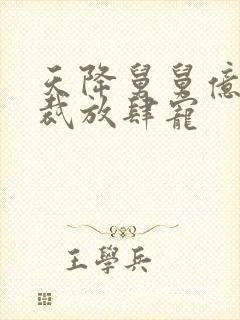 天降舅舅億
裁放肆寵
王學兵